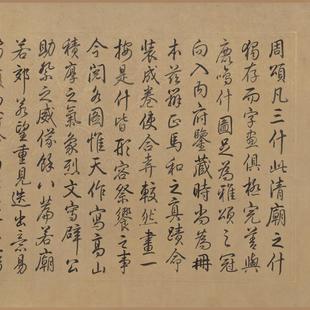 周頌凡三什此清廟之什
獨存而字畫俱極完善與
鹿鳴什圖足為雅頌之冠
向入內府鑒藏時尚為冊
本茲辨正馬和之真蹟命
裝成卷使合弆較然畫一
按是什皆形容祭饗之事
今閱各圖惟天作寫高山
積厚之氣象烈文寫辟公
助祭之威儀餘八篇若廟
若郊若望重見迭出意易